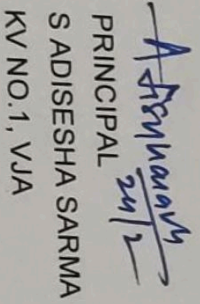 24/2
PRINCIPAL
S ADISESHA SARMA
KV NO.1, VJA